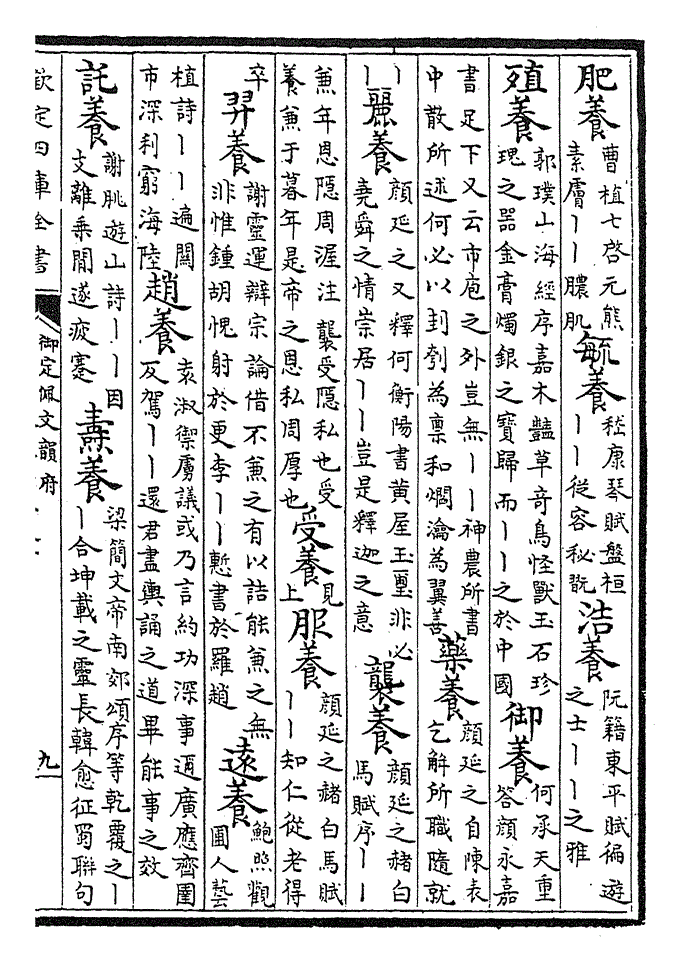 肥養曹植七啓元熊素膚丨丨膿肌毓養嵇康琴賦盤桓丨丨從容秘翫浩養阮籍東平賦徧遊之士丨丨之雅
殖養郭璞山海經序嘉木豔草奇鳥怪獸玉石珍瑰之器金膏燭銀之寶歸而丨丨之於中國御養何承天重答顔永嘉
書足下又云市庖之外豈無丨丨神農所書中散所述何必以封刳為稟和爓瀹為翼善藥養顔延之自陳表乞解所職隨就
丨丨麗養顔延之又釋何衡陽書黃屋玉璽非必堯舜之情崇居丨丨豈是釋迦之意襲養顔延之赭白馬賦序丨丨
兼年恩隱周渥注襲受隱私也受養兼于暮年是帝之恩私周厚也受養見上服養顔延之赭白馬賦丨丨知仁從老得
卒羿養謝靈運辯宗論借不兼之有以詰能兼之無非惟鍾胡愧射於更李丨丨慙書於羅趙遠養鮑照觀圃人藝
植詩丨丨遍閶市深利窮海陸趙養袁淑禦虜議或乃言約功深事邇廣應齊圉反駕丨丨還君盡輿誦之道畢能事之效
託養謝朓遊山詩丨丨因支離乗閒遂疲蹇燾養梁簡文帝南郊頌序等乾覆之丨丨合坤載之靈長韓愈征蜀聯句
欽定四庫全書
御定佩文韻府
九